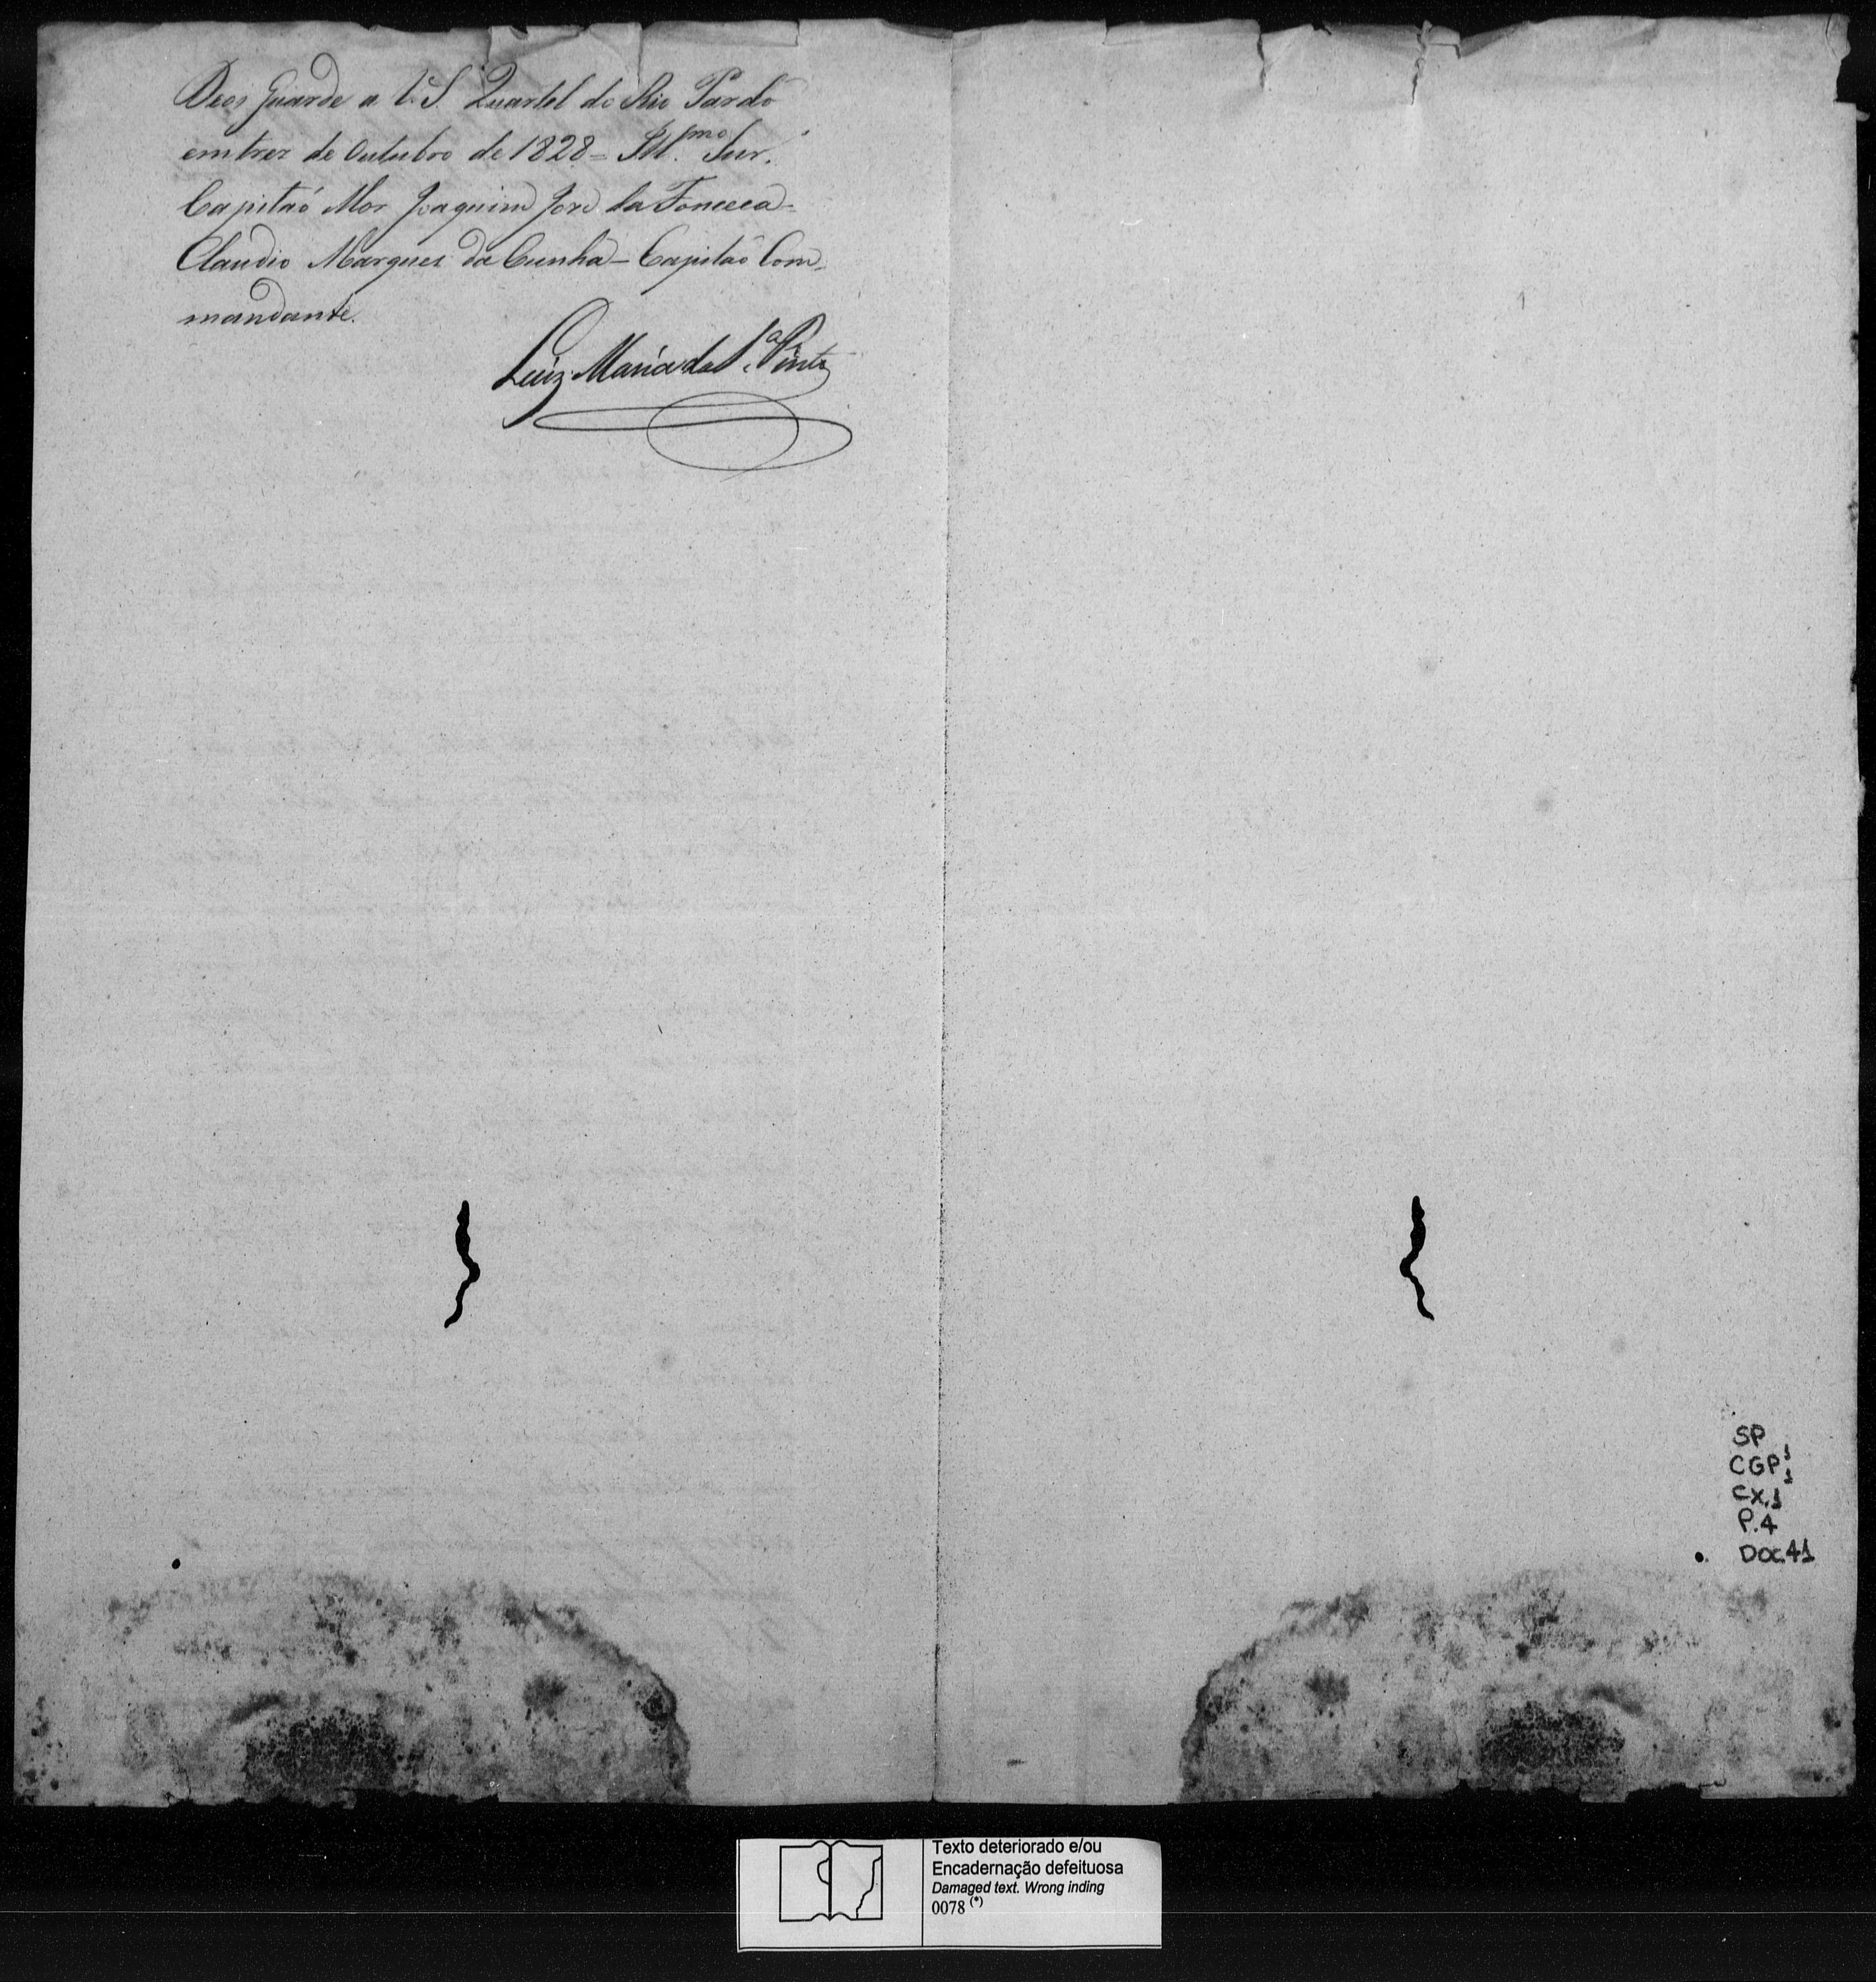 Deos Guarde a V. S. Quartel do Rio Pardo
em trez de Outubro de 1828 = Ill.mo Snr.
Capitaõ Mor Joaquim Joze da Fonceca =
Claudio Marques da Cunha = Capitaõ Com-
mandante.
Luiz Maria da S.a Pinto
SP
CGP1
CX.1
P.4
Doc.41
Texto deteriorado e/ou
Encadernação defeituosa
Damaged text. Wrong inding
0078 (*)